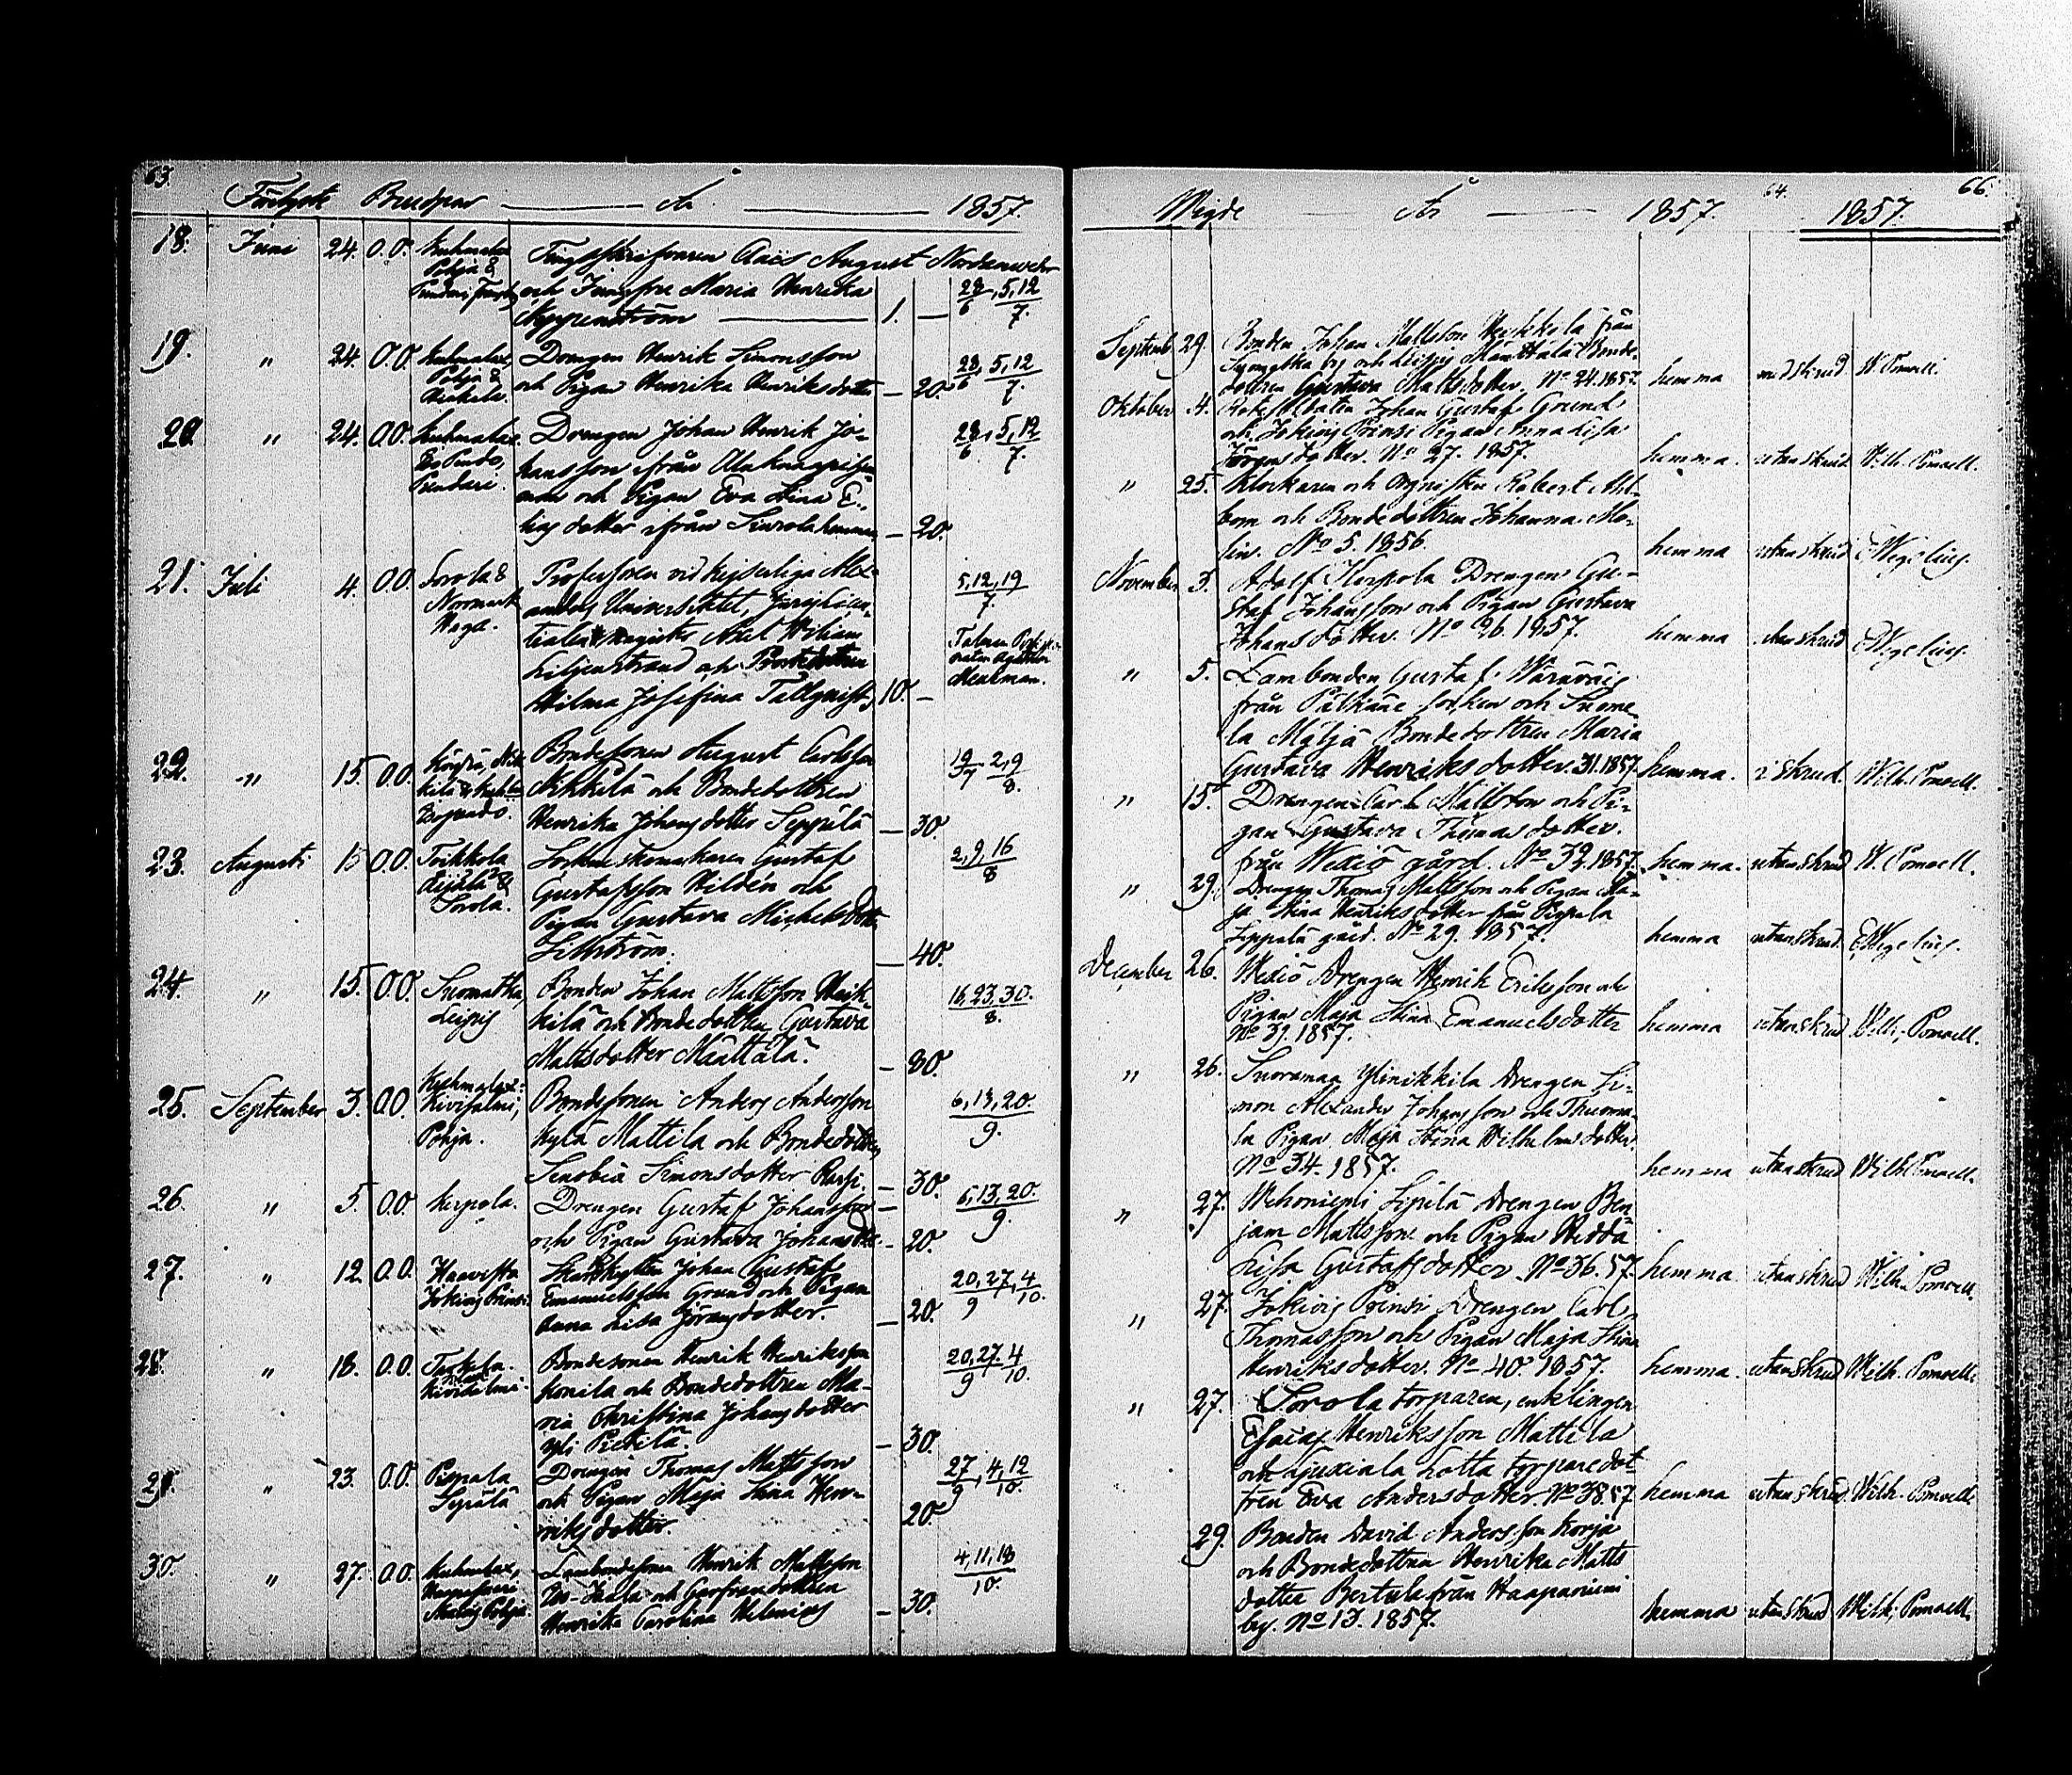 63.
Förlyste Brudpar År 1857.
18. Juni 24. O.O. Kuhmalax
Pohja &
och Jungfru Maria Henrika
1. — 28/6, 5, 12/7.
19. " 24. O.O. Kuhmalax,
Pohja &
Drengen Henrik Simonsson
och Pigan Henrika Henriksdotter — 20. 28/6, 5, 12/7
20. " 24. O.O. Kuhmalax
Drengen Johan Henrik Jo-
hansson ifrån
och Pigan Eva Stina E-
lias dotter ifrån — 20. 28/6, 5, 12/7
21. Juli 4. O.O. Sorola &
Normark
Haga.
Professoren vid Kejserliga Alex-
anders Universitetet, Juris licen-
tiaten & magister Axel Wiliam
Liljenstrand och
Wilma Josefina Tallqvist, 10. — 5, 12, 19/7.
22. " 15. O.O.
Bondesonen August Carlsson
Nikkilä och Bondedottren
Henrika Johansdotter Seppälä — 30. 19/7 2, 9/8.
23. Augusti 15 O.O. Toikkola
& Sorola.
Socknes skomakaren Gustaf
Gustafsson Hildén och
Pigan Gustava Michelsdotter
— 40. 2, 9, 16/8
24. " 15. O.O. Suomatka,
Leipig
Bonden Johan Mattsson Heik-
kilä och Bondedottren Gustava
Mattsdotter Määttälä. — 30. 16, 23, 30./8.
25. September 3. O.O. Kuhmalax:
Kivisalmi,
Pohja.
Bondesonen Anders Andersson
Kylä Mattila och Bondedottren
Senobia Simonsdotter — 30. 6, 13, 20./9.
26. " 5. O.O. Kerpola.
Drengen Gustaf Johansson
och Pigan Gustava Johansdtr. — 20. 6, 13, 20./9.
27. " 12. O.O. Haavisto
Jokioij Prinsi
Johan Gustaf
Emanuelsson Grund och Pigan
Anna Lisa Jöransdotter. — 20. 20, 27/9, 4/10.
28. " 18. O.O.
Kivisalmi.
Bondesonen Henrik Henriksson
och Bondedottren Ma-
ria Christina Johansdotter
Yli Pietilä. — 30. 20, 27/9 4/10.
29. " 23. O.O. Pispala
Drengen Thomas Mattsson
och Pigan Maja Stina Hen-
riksdotter. — 20. 27/9, 4, 12/10.
30. " 27. O.O. Kuhmalax,
Pohja
Henrik Mattsson
Henrika Carolina Helenius — 30. 4, 11, 18/10.
64. 66.
Wigde År 1857. 1857.
Septemb 29. Bonden Johan Mattsson Heikkilä från
Suomatka by och Leipig Määttälä Bonde-
dottren Gustava Mattsdotter. No 24. 1857. hemma med skrud W. Pomoell.
Oktober 4. Rotesoldaten Johan Gustaf Grund
och Jokioij Prinsi Pigan Anna Lisa
Jörgens dotter. No 27. 1857. hemma. utan skrud Wilh. Pomoell.
" 25. Klockaren och Orgnisten Robert Ahl-
bom och Bondedottren Johanna Mo-
lin. No 5. 1856. hemma utan skrud E Wegelius.
November 3. Adolf Korpola Drengen Gu-
staf Johansson och Pigan Gustava
Johansdotter. No 26. 1857. hemma utan skrud E Wegelius.
" 5. Lambonden Gustaf
från Pälkäne socken och Suome-
la Mäljä Bondedottren Maria
Gustava Henriksdotter. 31. 1857. hemma. i skrud. Wilh. Pomoell.
" 15. Drengen Carl Mattsson och Pi-
gan Gustava Thomasdotter.
från Wexiö gård. No 32. 1857. hemma. utan skrud W. Pomoell.
" 29. Drengen Thomas Mattsson och Pigan Ma-
ja Stina Henriksdotter från Pispala
gård. No 29. 1857. hemma utan skrud. E Wegelius.
December 26. Wexiö Drengen Henrik Eriksson och
Pigan Maja Stina Emanuelsdotter
No 39. 1857. hemma utan skrud Wilh. Pomoell.
" 26. Suorama Ylinikkila Drengen Si-
mon Alexander Johansson och Thuoma-
la Pigan Maja Stina Wilhelmsdotter
No 34. 1857. hemma utan skrud Wilh. Pomoell.
" 27. Wehoniemi Sipilä Drengen Ben-
jam Mattsson och Pigan Hedda
Lisa Gustafsdotter No 36. 57. hemma. utan skrud Wilh. Pomoell.
" 27. Jokioij Prinsi Drengen Carl
Thomasson och Pigan Maja Stina
Henriksdotter. No 40. 1857. hemma. utan skrud Wilh. Pomoell.
" 27. Sorola torparen, enklingen
Esaias Henriksson Mattila
och Hotta torparedot-
tren Eva Andersdotter. No 38. 57 hemma utan skrud. Wilh. Pomoell.
29. Bonden David Andersson Korja
och Bondedottren Henrika Matts
dotter Bertula från Haapaniemi
by. No 13. 1857. hemma utan skrud Wilh. Pomoell.